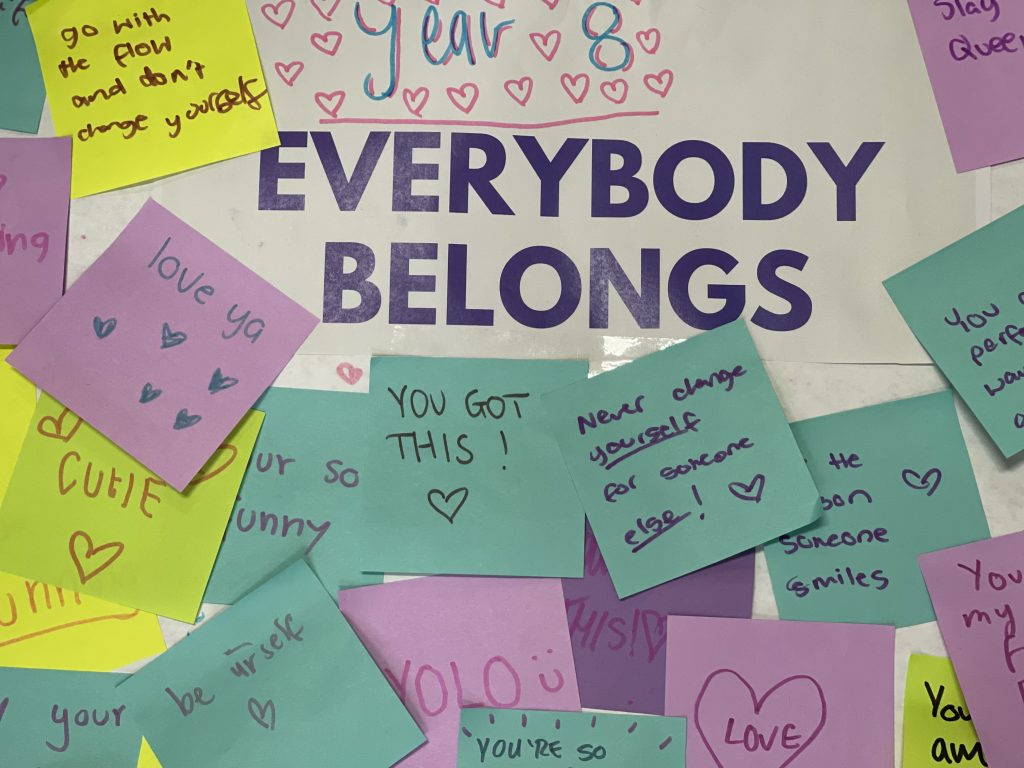 go with
the flow
and don't
change yourself
Year 8
Slay
Queen
EVERYBODY
BELONGS
love ya
YOU GOT
THIS!
Never change
yourself
for someone
else!
You
perf
CUTIE
ur so
funny
the
son
someone
smiles
THIS!
be urself
YOLO ü
LOVE
You
my
your
YOU'RE SO
You
am